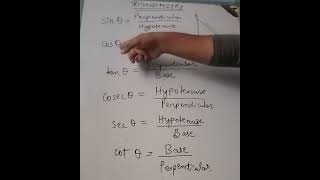 TRIGONOMETRY
sin θ = Perpendicular / Hypotenuse
cos θ
tan θ = Perpendicular / Base
Cosec θ = Hypotenuse / Perpendicular
sec θ = Hypotenuse / Base
cot θ = Base / Perpendicular